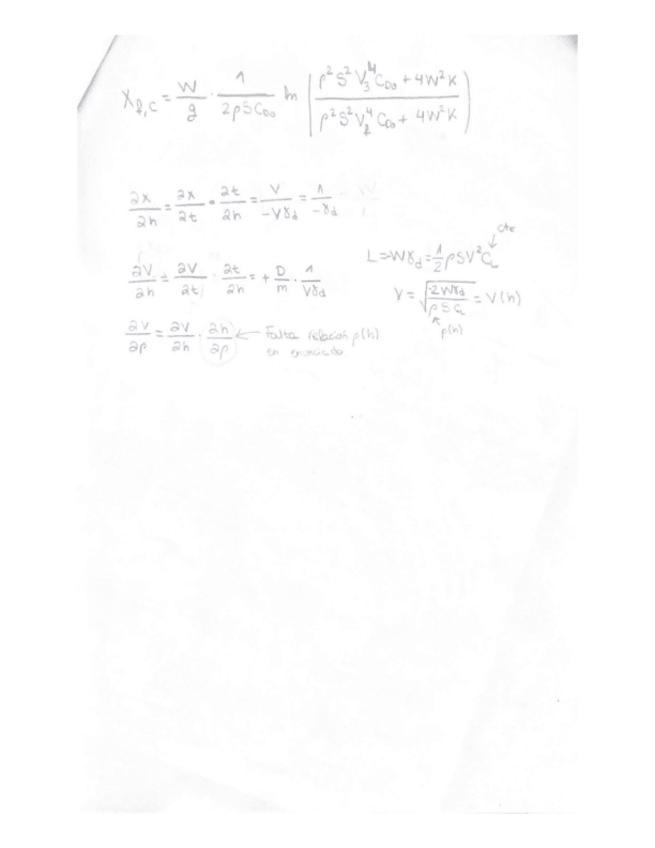 X_{f,c} = W/g · 1/(2ρSC_{D0}) ln | (ρ²S²V₃⁴C_{D0} + 4W²K) / (ρ²S²V_f⁴C_{D0} + 4W²K) )
∂x/∂h = ∂x/∂t · ∂t/∂h = V/(-Vγ_d) = 1/(-γ_d)
cte
L=Wγ_d = 1/2 ρSV²C_L
∂V/∂h = ∂V/∂t · ∂t/∂h = + D/m · 1/(Vγ_d)
V = √(2Wγ_d/(ρSC_L)) = V(h)
ρ(h)
∂V/∂ρ = ∂V/∂h · ∂h/∂ρ ← Falta relación ρ(h)
en enunciado.